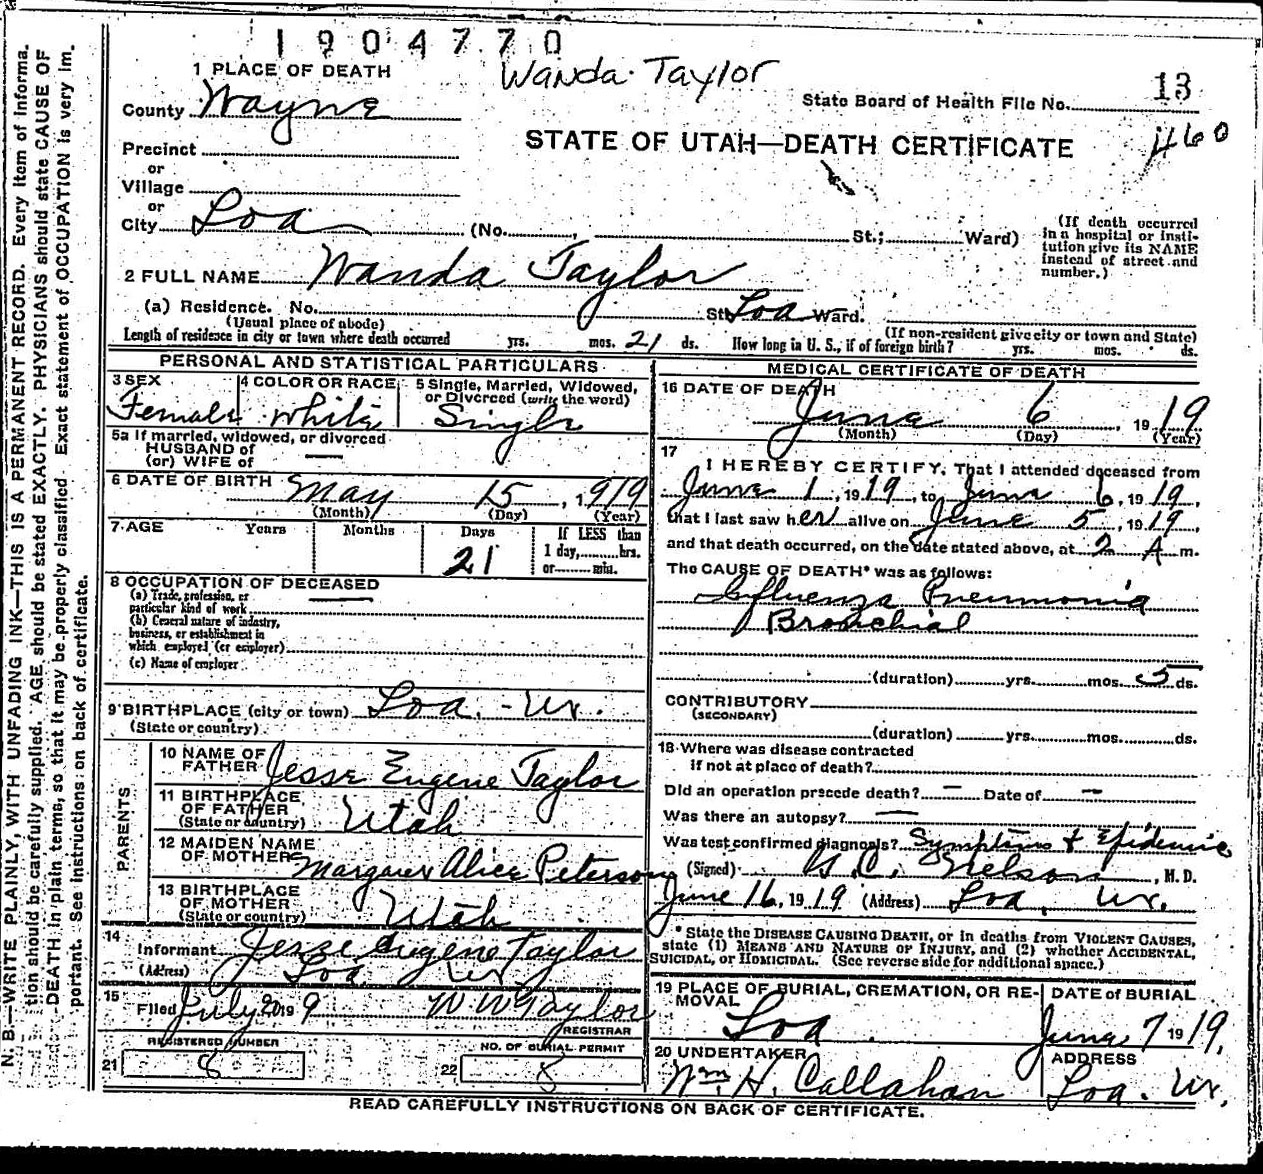 1904770
Wanda Taylor
13
1 PLACE OF DEATH
County Wayne
State Board of Health File No.
STATE OF UTAH—DEATH CERTIFICATE
460
Precinct
or
Village
or
City Loa (No. , St.; Ward)
(If death occurred in a hospital or insti-
tution give its NAME
instead of street and
number.)
2 FULL NAME Wanda Taylor
(a) Residence. No. St. Loa Ward.
(Usual place of abode) (If non-resident give city or town and State)
Length of residence in city or town where death occurred yrs. mos. 21 ds. How long in U. S., if of foreign birth? yrs. mos. ds.
PERSONAL AND STATISTICAL PARTICULARS
3 SEX
Female
4 COLOR OR RACE
White
5 Single, Married, Widowed,
or Divorced (write the word)
Single
5a If married, widowed, or divorced
HUSBAND of
(or) WIFE of —
6 DATE OF BIRTH May 15, 1919
(Month) (Day) (Year)
7 AGE Years Months Days If LESS than
21 1 day, hrs.
or min.
8 OCCUPATION OF DECEASED
(a) Trade, profession, or
particular kind of work
(b) General nature of industry,
business, or establishment in
which employed (or employer)
(c) Name of employer
9 BIRTHPLACE (city or town) Loa. - Ut.
(State or country)
PARENTS
10 NAME OF
FATHER Jesse Eugene Taylor
11 BIRTHPLACE
OF FATHER
(State or country) Utah
12 MAIDEN NAME
OF MOTHER Margaret Alice Peterson
13 BIRTHPLACE
OF MOTHER
(State or country) Utah
14
Informant Jesse Eugene Taylor
(Address) Loa Ut
15
Filed July 20 1919 W. W. Taylor
REGISTRAR
REGISTERED NUMBER
21 8
NO. OF BURIAL PERMIT
22 8
MEDICAL CERTIFICATE OF DEATH
16 DATE OF DEATH
June 6, 1919
(Month) (Day) (Year)
17
I HEREBY CERTIFY, That I attended deceased from
June 1, 1919, to June 6, 1919,
that I last saw her alive on June 5, 1919,
and that death occurred, on the date stated above, at 2 A m.
The CAUSE OF DEATH* was as follows:
Influenza Pneumonia
Bronchial
(duration) yrs. mos. 5 ds.
CONTRIBUTORY
(SECONDARY)
(duration) yrs. mos. ds.
18 Where was disease contracted
if not at place of death?
Did an operation precede death? — Date of —
Was there an autopsy? —
Was test confirmed diagnosis? Symptoms & Epidemic
(Signed) Nelson, M. D.
June 16, 1919 (Address) Loa, Ut.
*State the DISEASE CAUSING DEATH, or in deaths from VIOLENT CAUSES,
state (1) MEANS AND NATURE OF INJURY, and (2) whether ACCIDENTAL,
SUICIDAL, or HOMICIDAL. (See reverse side for additional space.)
19 PLACE OF BURIAL, CREMATION, OR RE-
MOVAL
Loa
DATE of BURIAL
June 7 1919.
20 UNDERTAKER
Wm. H. Callahan
ADDRESS
Loa. Ut.
READ CAREFULLY INSTRUCTIONS ON BACK OF CERTIFICATE.
N. B.—WRITE PLAINLY, WITH UNFADING INK—THIS IS A PERMANENT RECORD. Every item of informa-
tion should be carefully supplied. AGE should be stated EXACTLY. PHYSICIANS should state CAUSE OF
DEATH in plain terms, so that it may be properly classified. Exact statement of OCCUPATION is very im-
portant. See instructions on back of certificate.